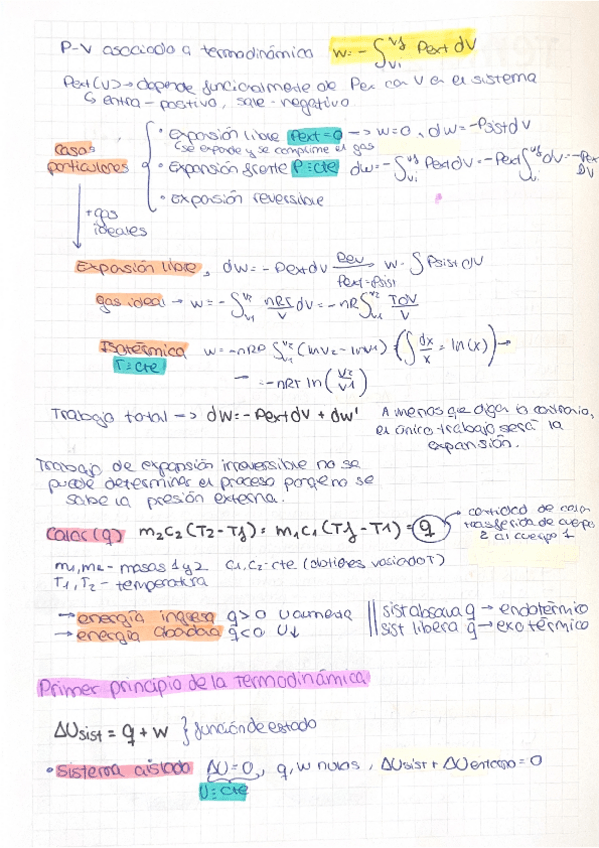 P-V asociado a termodinámica w=-∫Vi Vf Pext dV
Pext(V)→depende funcionalmente de Pex con V en el sistema
↳ entra-positivo, sale-negativo
Casos particulares
• Expansión libre Pext=0 → w=0, dw=-Psistdv
(se expande y se comprime el gas
• Expansión frente P≡cte dw=-∫Vi Vf PextdV=-Pext∫Vi Vf dV=-Pex ΔV
• expansión reversible
+gas ideales
Expansión libre, dw=-Pextdv Rev Pext=Psist w-∫PsistdV
gas ideal → w=-∫V1 V2 nRT/V dV=-nR∫V1 V2 TdV/V
Isotérmica w=-nR ∫V1 V2 (lnV2-lnV1) (∫dx/x = ln(x))→
T≡cte
→ =-nRT ln(V2/V1)
Trabajo total → dw=-Pextdv + dw' A menos que diga lo contrario,
el único trabajo será la
expansión.
Trabajo de expansión irreversible no se
puede determinar el proceso porque no se
sabe la presión externa.
Calor(q) m2C2(T2-Tf)=m1C1(Tf-T1)=q → cantidad de calor
trasferida de cuerpo
2 al cuerpo 1
m1,m2-masas 1y2 C1,C2-cte (obtienes variadoT)
T1,T2-temperatura
→energía ingresa q>0 U aumenta || sist absorva q → endotérmico
→energía q<0 U↓ || sist libera q→exotérmico
Primer principio de la Termodinámica
ΔUsist = q+w } función de estado
• sistema aislado ΔU=0, q,w nulas, ΔUsist+ΔUentorno=0
U≡cte